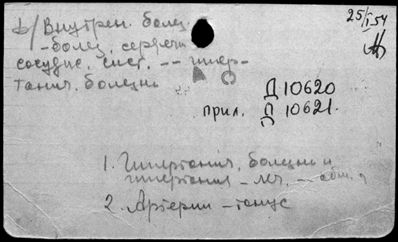 25/I 54
Внутрен. болез.
- болез. сердечн.
сосудис. сист. -- гипер-
танич. болезнь
Д 10620
прил. Д 10621.
1. Гипертонич. болезнь и
гипертония - леч. --
2. Артерии - тонус